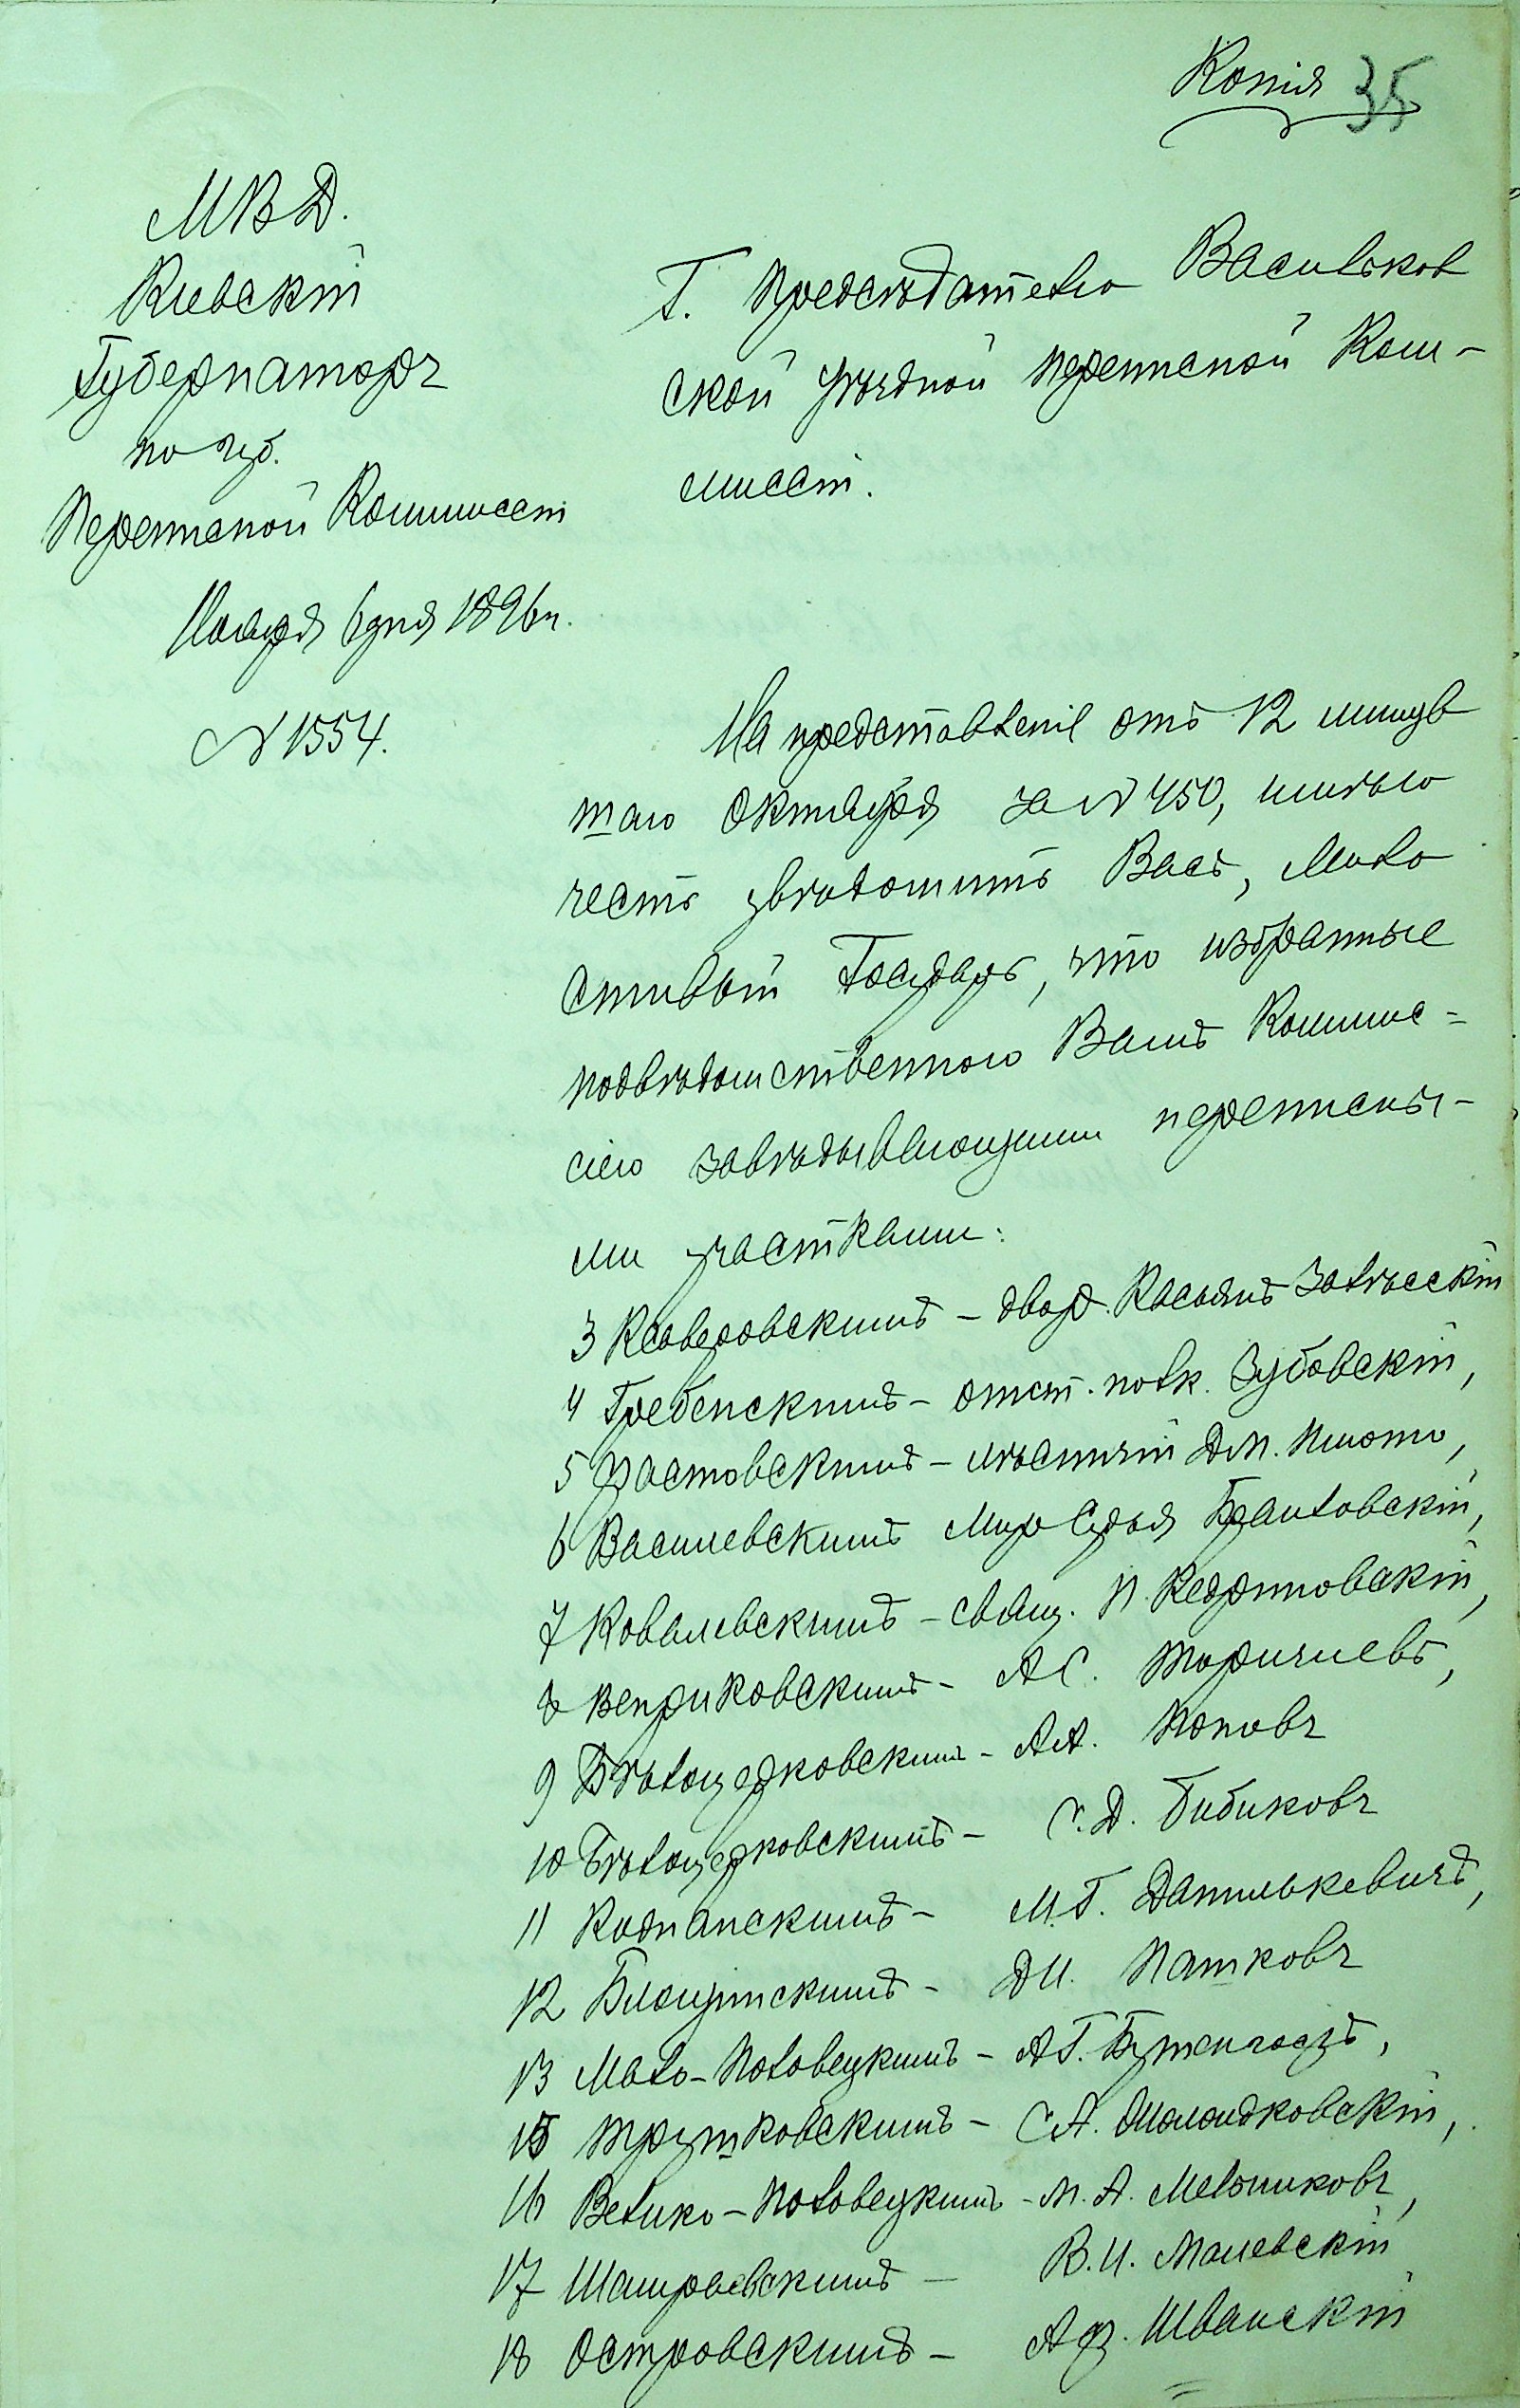 Копія 35
М В Д.
Кіевскій
Губернаторъ
по губ.
Переписной Коммиссіи
Ноября 6 дня 1896 г.
N 1554.
Г. Предсѣдателю Васильков
ской уѣздной переписной Ком-
миссіи.
На представленіе отъ 12 минув
шаго Октября за N 450, имѣю
честь увѣдомить Васъ, Мило
стивый Государь, что избранные
подвѣдомственною Вамъ Коммис=
сіею завѣдывающими переписны-
ми участками:
3 Ксаверовскимъ - двор. Касьянъ Залѣсскій
4 Гребенскимъ - отст. полк. Зубовскій,
5 Фастовскимъ - лѣсничій Д. П.
6 Васил евскимъ Мир Судья
7 Ковалевскимъ - свящ. П. Кедриновскій,
8 Веприковскимъ - А С.
9 Бѣлоцерковскимъ - А. А. Поповъ
10 Бѣлоцерковскимъ - С. Д. Бибиковъ
11 Кожанскимъ - М. Г. Данилькевичъ,
12 Блощинскимъ - Д И. Пашковъ
13 Мало-Половецкимъ - А Г.
15 Трушковскимъ - С А.
16 Велико-Половецкимъ - М. А. Мельниковъ,
17 Шамраевскимъ - В. И. Малевскій
18 Островскимъ - А Ф. Шванскій